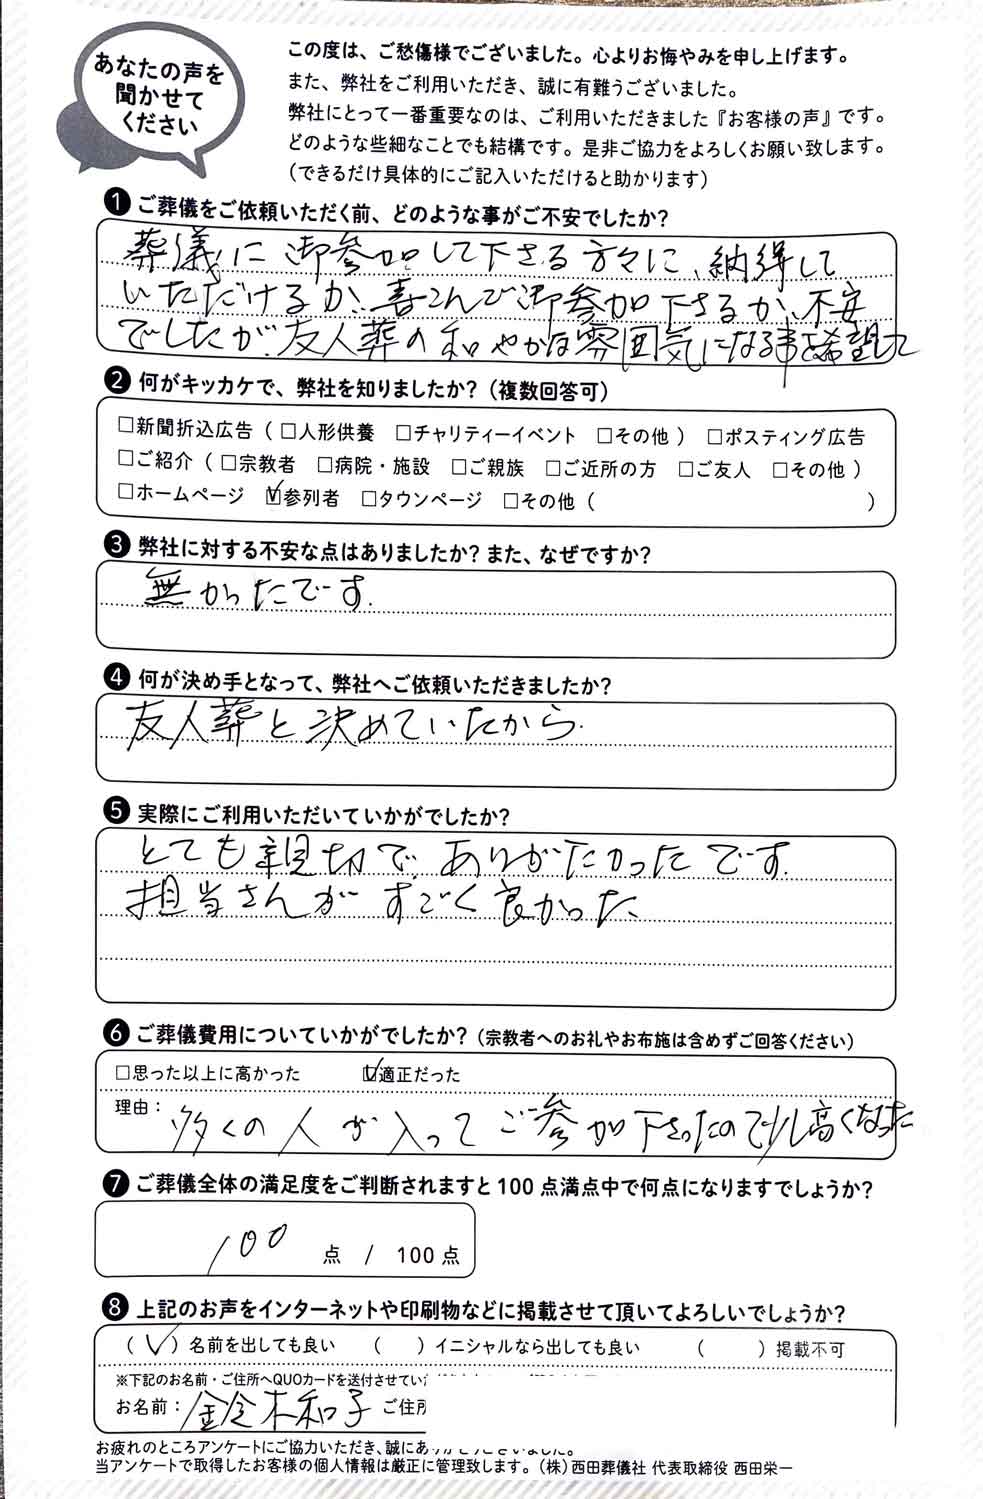 あなたの声を
聞かせて
ください
この度は、ご愁傷様でございました。心よりお悔やみを申し上げます。
また、弊社をご利用いただき、誠に有難うございました。
弊社にとって一番重要なのは、ご利用いただきました『お客様の声』です。
どのような些細なことでも結構です。是非ご協力をよろしくお願い致します。
(できるだけ具体的にご記入いただけると助かります)
❶ ご葬儀をご依頼いただく前、どのような事がご不安でしたか?
葬儀に御参加して下さる方々に、納得して
いただけるか、喜こんで御参加下さるか、不安
でしたが、友人葬の和やかな雰囲気になる事を希望して
❷ 何がキッカケで、弊社を知りましたか?(複数回答可)
□新聞折込広告(□人形供養 □チャリティーイベント □その他) □ポスティング広告
□ご紹介(□宗教者 □病院・施設 □ご親族 □ご近所の方 □ご友人 □その他)
□ホームページ ☑参列者 □タウンページ □その他( )
❸ 弊社に対する不安な点はありましたか?また、なぜですか?
無かったです.
❹ 何が決め手となって、弊社へご依頼いただきましたか?
友人葬と決めていたから.
❺ 実際にご利用いただいていかがでしたか?
とても親切で、ありがたかったです.
担当さんがすごく良かった
❻ ご葬儀費用についていかがでしたか?(宗教者へのお礼やお布施は含めずご回答ください)
□思った以上に高かった ☑適正だった
理由: 多くの人が入ってご参加下さったので少し高くなった
❼ ご葬儀全体の満足度をご判断されますと100点満点中で何点になりますでしょうか?
100 点 / 100点
❽ 上記のお声をインターネットや印刷物などに掲載させて頂いてよろしいでしょうか?
(✓)名前を出しても良い ( )イニシャルなら出しても良い ( )掲載不可
※下記のお名前・ご住所へQUOカードを送付させてい
お名前: 鈴木和子 ご住所
お疲れのところアンケートにご協力いただき、誠にありがとうございました。
当アンケートで取得したお客様の個人情報は厳正に管理致します。(株)西田葬儀社 代表取締役 西田栄一